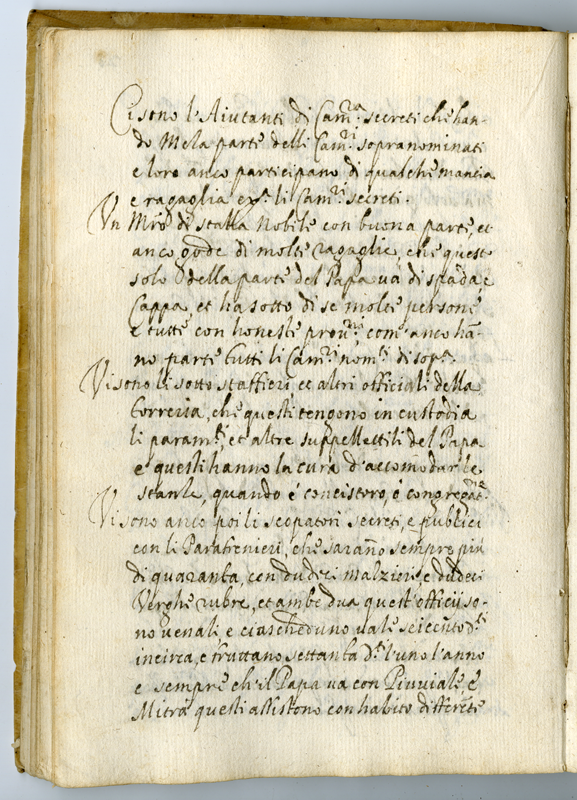 Ci sono l'Aiutanti di Cam.ra secreti che han-
do Meza parte delli Cam.ri sopranominati
e loro anco participano di qualche mancia
e ragaglia li Cam.ri secreti.
Un Mrō di stalla Nobile con buona parte, et
anco gode di molte ragaglie, che questo
solo della parte del Papa và di spada è
Cappa, et hà sotto di se molte persone
e tutte con honeste com' anco hā-
no parte tutti li Cam.ri nom.ti di sop.a
Vi sono li sotto staffieri et altri officiali della
foreria, che questi tengono in custodia
li param.ti, et altre suppellettili del Papa
e questi hanno la cura d'accomodar le
stanze, quando é concistoro, ó congreg.ne
Vi sono anco poi li scopatori secreti, e publici
con li Parafrenieri, che sarañò sempre più
di quaranta, con dudeci mazzieri, e dudeci
Verghe rubre, et ambe dua quest' officij so-
no venali, e ciascheduno vale seicēto d.ti
incirca, e fruttano settanta d.ti l'uno l'anno
e sempre ch'il Papa va con Piuviale, é
Mitra questi assistono con habito differēte